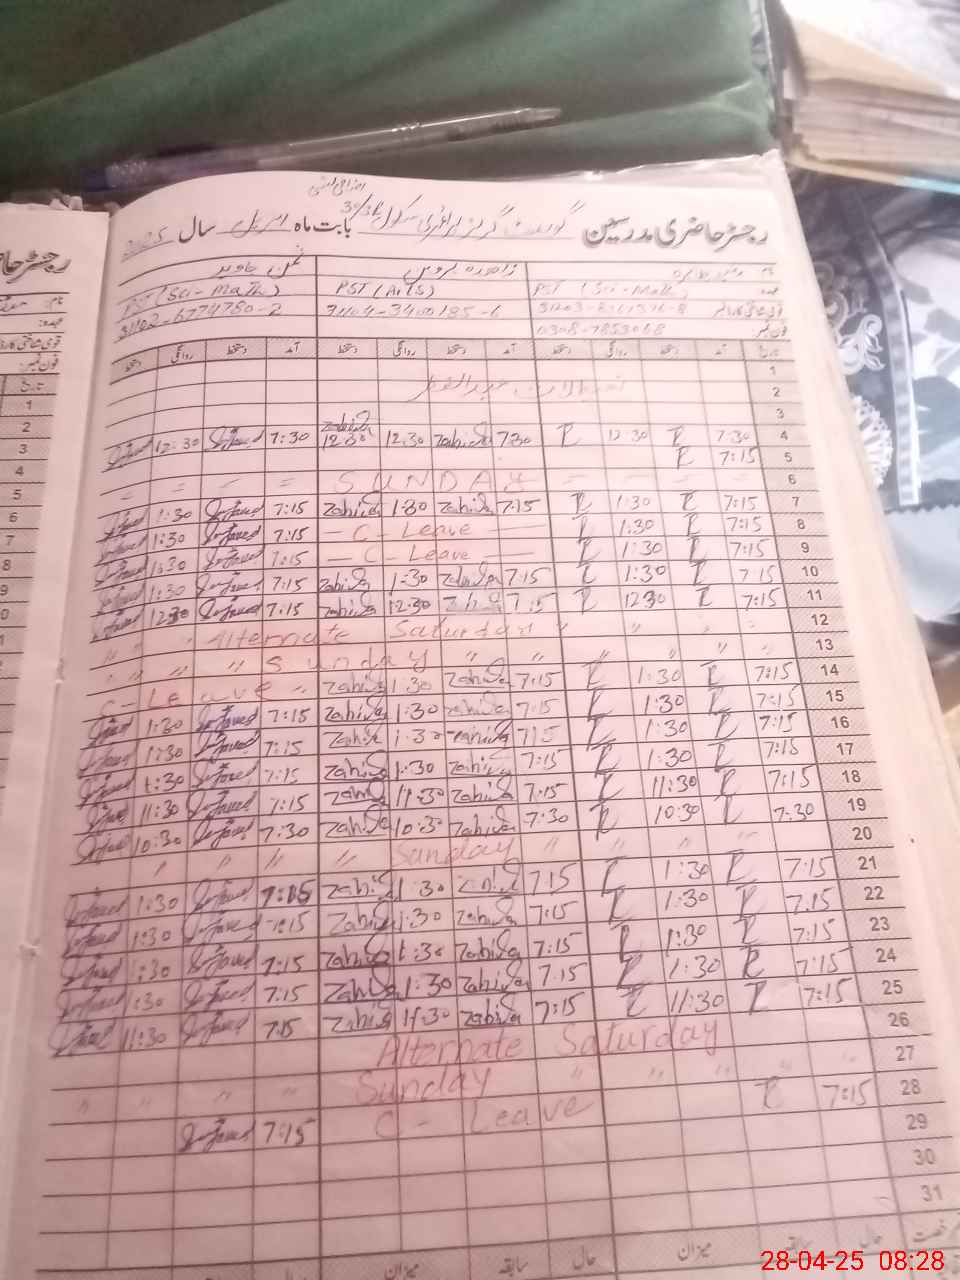 رجسٹر حاضری مدرسین گورنمنٹ گرلز پرائمری سکول بابت ماہ اپریل سال 2025
نام زاہدہ پروین جاوید
عہدہ PST (Sci-Math) PST (Arts) PST (Sci-Math)
قومی شناختی کارڈ نمبر 31102-6774780-2
فون نمبر 0308-7853068
تاریخ آمد دستخط روانگی دستخط آمد دستخط روانگی دستخط آمد دستخط روانگی دستخط
1
2 تعطیلات عیدالفطر
3
4 7:30 R 12:30 R 7:30 Zahida 12:30 Zahida 12:30 7:30 S-Javed 12:30 S-Javed
5 7:15 R
6 SUNDAY
7 7:15 R 1:30 R 7:15 Zahida 1:30 Zahida 7:15 S-Javed 1:30 S-Javed
8 7:15 R 1:30 R — C - Leave — 7:15 S-Javed 1:30 S-Javed
9 7:15 R 1:30 R — C - Leave — 7:15 S-Javed 1:30 S-Javed
10 7:15 R 1:30 R 7:15 Zahida 1:30 Zahida 7:15 S-Javed 1:30 S-Javed
11 7:15 R 12:30 R 7:15 Zahida 12:30 Zahida 7:15 S-Javed 12:30 S-Javed
12 Alternate Saturday
13 " " " Sunday " " " " "
14 7:15 R 1:30 R 7:15 Zahida 1:30 Zahida C-Leave
15 7:15 R 1:30 R 7:15 Zahida 1:30 Zahida 7:15 S-Javed 1:30 S-Javed
16 7:15 R 1:30 R 7:15 Zahida 1:30 Zahida 7:15 S-Javed 1:30 S-Javed
17 7:15 R 1:30 R 7:15 Zahida 1:30 Zahida 7:15 S-Javed 1:30 S-Javed
18 7:15 R 11:30 R 7:15 Zahida 11:30 Zahida 7:15 S-Javed 11:30 S-Javed
19 7:30 R 10:30 R 7:30 Zahida 10:30 Zahida 7:30 S-Javed 10:30 S-Javed
20 " " " " Sunday " " " "
21 7:15 R 1:30 R 7:15 Zahida 1:30 Zahida 7:15 S-Javed 1:30 S-Javed
22 7:15 R 1:30 R 7:15 Zahida 1:30 Zahida 7:15 S-Javed 1:30 S-Javed
23 7:15 R 1:30 R 7:15 Zahida 1:30 Zahida 7:15 S-Javed 1:30 S-Javed
24 7:15 R 1:30 R 7:15 Zahida 1:30 Zahida 7:15 S-Javed 1:30 S-Javed
25 7:15 R 11:30 R 7:15 Zahida 11:30 Zahida 7:15 S-Javed 11:30 S-Javed
26 Alternate Saturday
27 " " " " Sunday " " " "
28 7:15 R C - Leave 7:15 S-Javed
29
30
31
رخصت حال سابقہ میزان حال سابقہ میزان
رجسٹر حا
نام:
عہدہ:
قومی شناختی کارڈ
فون نمبر:
تاریخ
1
2
3
4
5
6
7
8
9
28-04-25 08:28